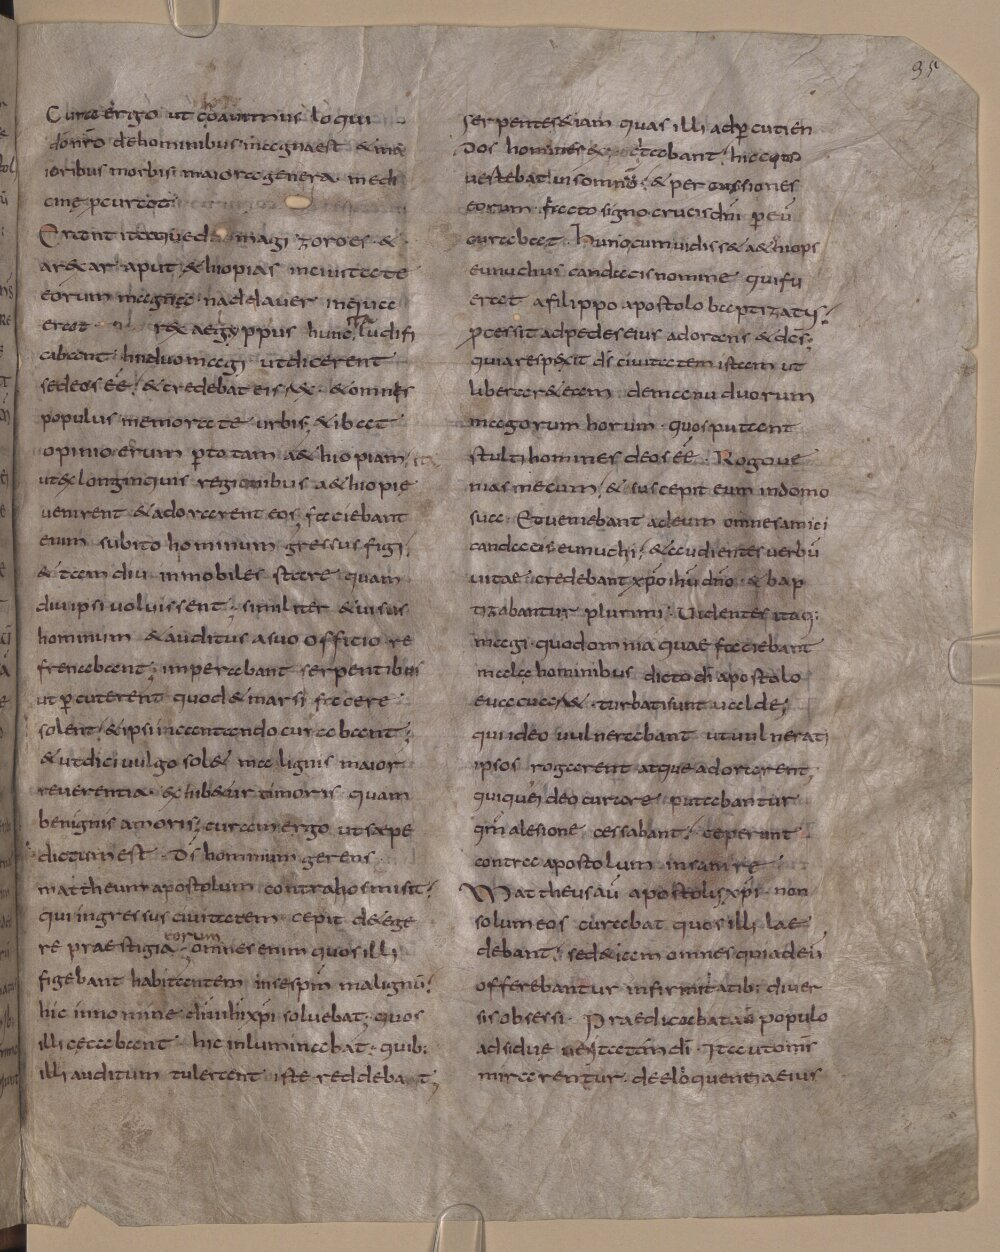 95
Cura ergo ut coavimus loqui
dō nr̄o de hominibus magna est & ma
ioribus morbis maiora genera medi
cine pcurat
Erant itaque duo magi zoroes &
arfaxar aput &hiopias in civitate
eorum magnæ nadelaver in qua
erat rex aegyppus hunc ludifi
cabant hii duo magi ut dicerent
se deos eē & credebat eis rex & omnis
populus memoratæ urbis & ibat
opinio eorum ptotam a&hiopiam
ut ex longinquis regionibus a&hiopie
venirent & adorarent eos faciebant
enim subito hominum gressus figi
& tam diu inmobiles stare quam
diu ipsi voluissent similiter & visus
hominum & auditus a suo officio re
frenabant imperabant serpentibus
ut pcuterent quod & marsi facere
solent & ipsi incantando curabant
& ut dici vulgo sol& malignis maior
reverentia exhib&ur timoris quam
benignis amoris curam ergo ut sæpe
dictum est dˢ hominum gerens
mattheum apostolum contra hos misit
qui ingressus civitatem cepit de&ege
re praestigia eorum omnes enim quos illi
figebant habitantem in se spm̄ malignū
hic in nomine dn̄i ihū xp̄i solvebat quos
illi cæcabant hic inluminabat quib;
illi auditum tulerant iste reddebat
serpentes &iam quas illi ad pcutien
dos homines excitabant hic eos
vertebat in somnō & percussiones
eorum facto signo crucis dn̄i p eū
curabat Hunc cum vidiss& a&hiops
eunuchus candacis nomine qui fu
erat a filippo apostolo baptizatus
pcessit ad pedes eius adorans & dcs
quia respexit dˢ civitatem istam ut
liber&ur &eam de manu duorum
magorum horum quos putant
stulti homines deos eē Rogo ve
nias mecum & suscepit eum in domo
sua Et veniebant ad eum omnes amici
candacis eunuchi & audientes verbū
vitae credebant xp̄o ihū dn̄o & bap
tizabantur plurimi Videntes itaq;
magi quod omnia quae faciebant
mala hominibus dicto dī apostolo
evacua& turbati sunt valde
qui ideo vulnerabant ut vulnerati
ipsos rogarent atque adorarent
qui quei deo curare putabantur
qm̄ a lesione cessabant ceperunt
contra apostolum insanire
Mattheus aū apostolus xp̄i non
solum eos curabat quos illi lae
debant sed &iam omnes qui ad eū
offerebantur infirmitatib; diver
sis obsessi Praedicabat aū populo
adsidue veritatem dī Ita ut omnes
mirarentur de eloquentia eius